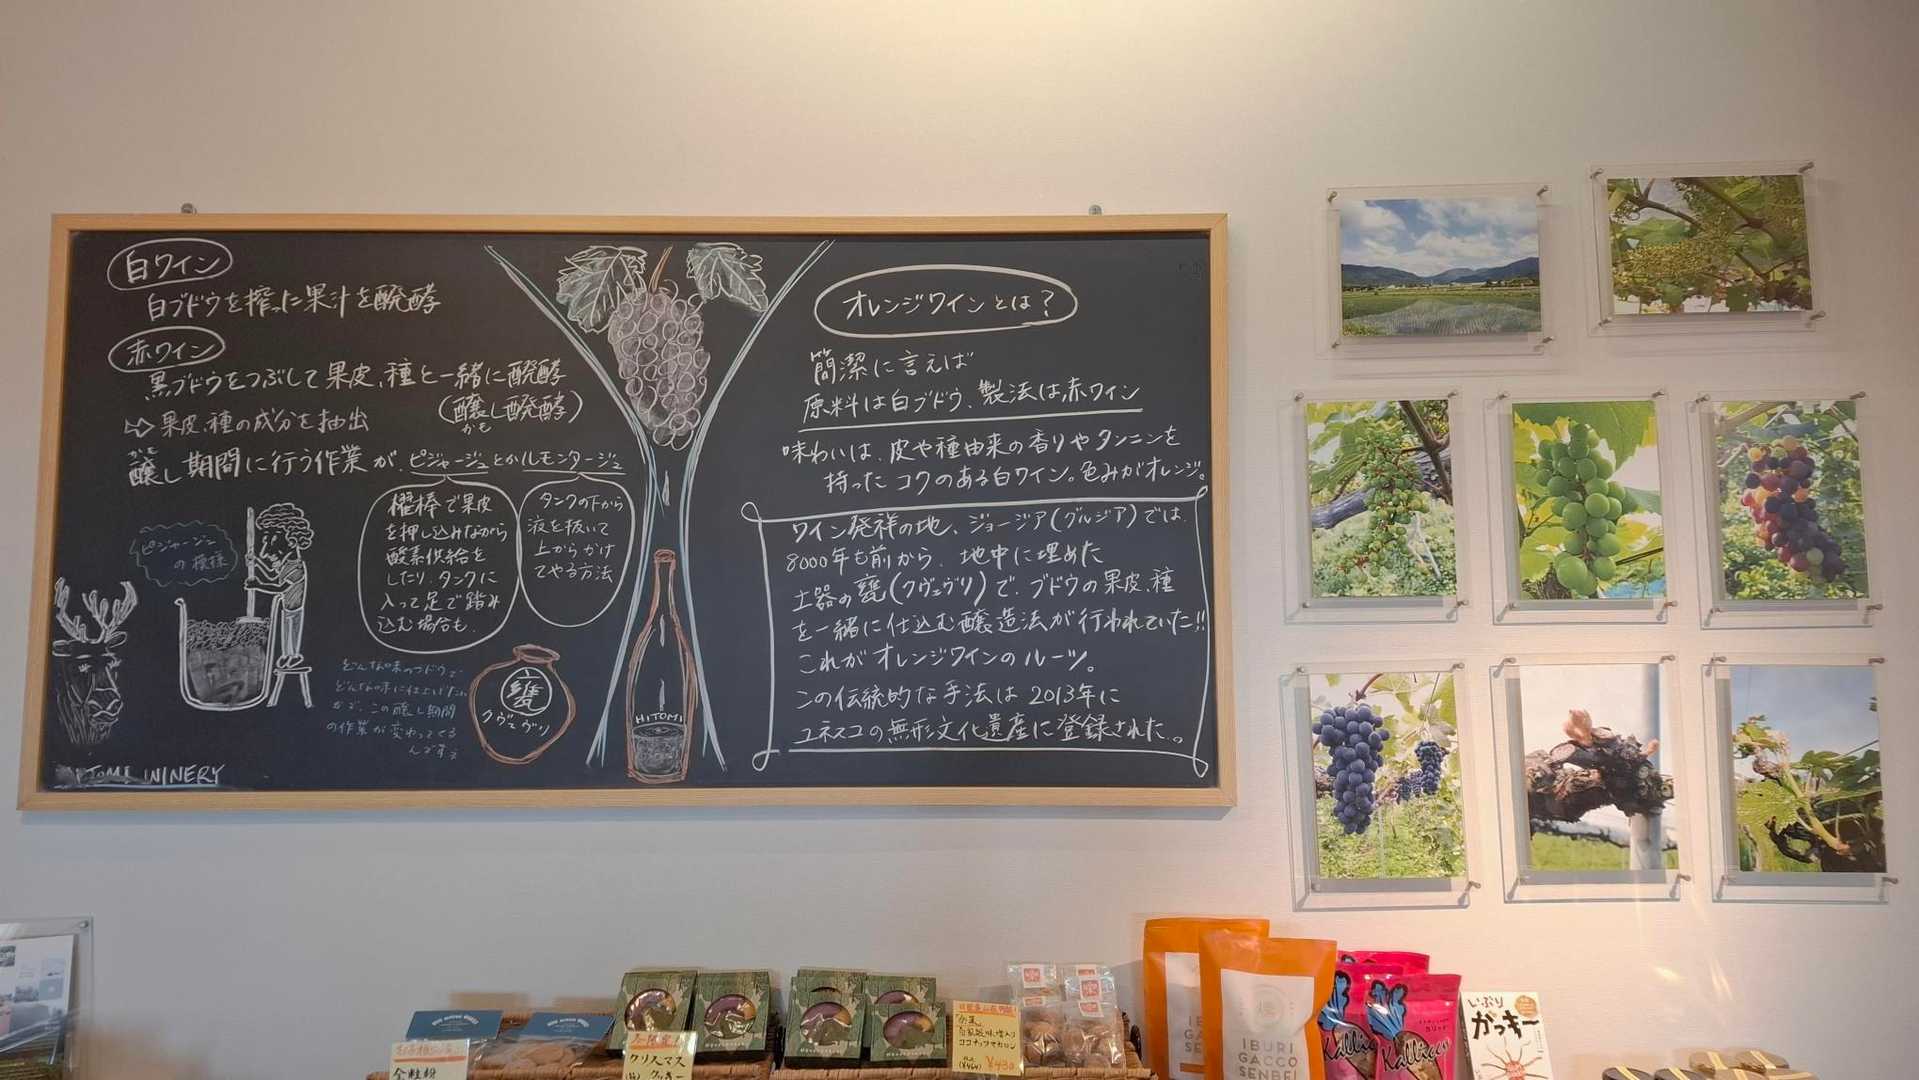 白ワイン
白ブドウを搾った果汁を醗酵
赤ワイン
黒ブドウをつぶして果皮、種と一緒に醗酵
(醸し醗酵)
かも
⇨果皮、種の成分を抽出
かも
醸し期間に行う作業が、ピジャージュとかルモンタージュ
櫂棒で果皮
を押し込みながら
酸素供給を
したり、タンクに
入って足で踏み
込む場合も。
タンクの下から
液を抜いて
上からかけ
てやる方法
ピジャージュ
の模様
どんな味のブドウで
どんな味に仕上げたい
かで、この醸し期間
の作業が変わってくる
んですね
甕
クヴェヴリ
HITOMI
HITOMI WINERY
オレンジワインとは?
簡潔に言えば
原料は白ブドウ、製法は赤ワイン
味わいは、皮や種由来の香りやタンニンを
持ったコクのある白ワイン。色みがオレンジ。
ワイン発祥の地、ジョージア(グルジア)では、
8000年も前から、地中に埋めた
土器の甕(クヴェヴリ)で、ブドウの果皮、種
を一緒に仕込む醸造法が行われていた!!
これがオレンジワインのルーツ。
この伝統的な手法は2013年に
ユネスコの無形文化遺産に登録された。
全粒粉
クリスマス
クッキー
ココナッツマカロン
¥430
IBURI
GACCO
SENBEI
Kallicco
いぶり
がっキー